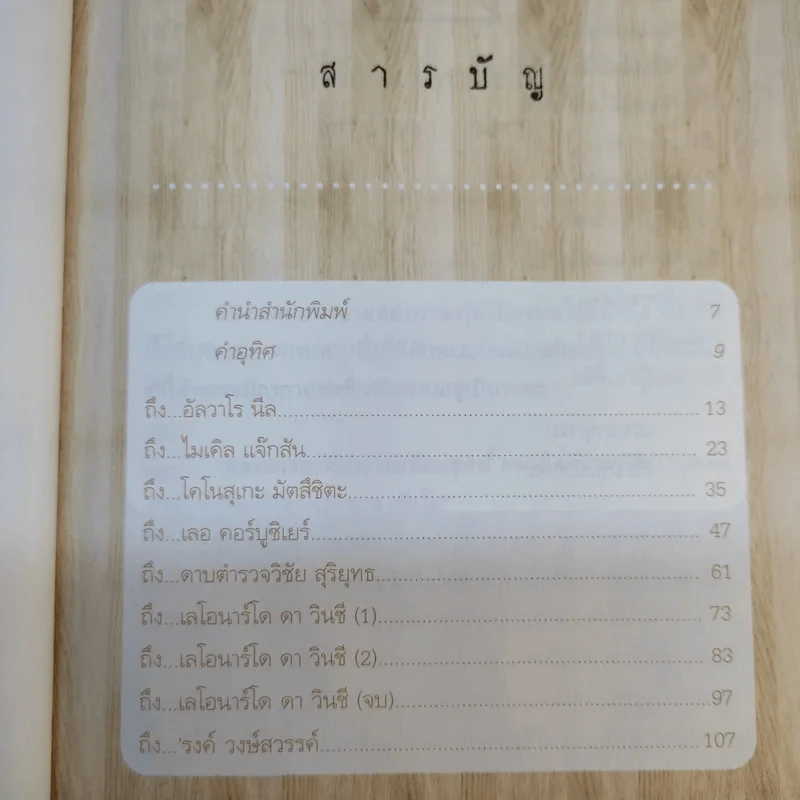 สารบัญ
คำนำสำนักพิมพ์ 7
คำอุทิศ 9
ถึง...อัลวาโร นีล.................... 13
ถึง...ไมเคิล แจ๊กสัน.................... 23
ถึง...โคโนสุเกะ มัตสึชิตะ.................... 35
ถึง...เลอ คอร์บูซิเยร์.................... 47
ถึง...ดาบตำรวจวิชัย สุริยุทธ.................... 61
ถึง...เลโอนาร์โด ดา วินชี (1).................... 73
ถึง...เลโอนาร์โด ดา วินชี (2).................... 83
ถึง...เลโอนาร์โด ดา วินชี (จบ).................... 97
ถึง...'รงค์ วงษ์สวรรค์.................... 107